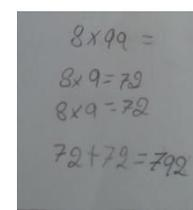 8x99 =
8x9=72
8x9=72
72+72=792